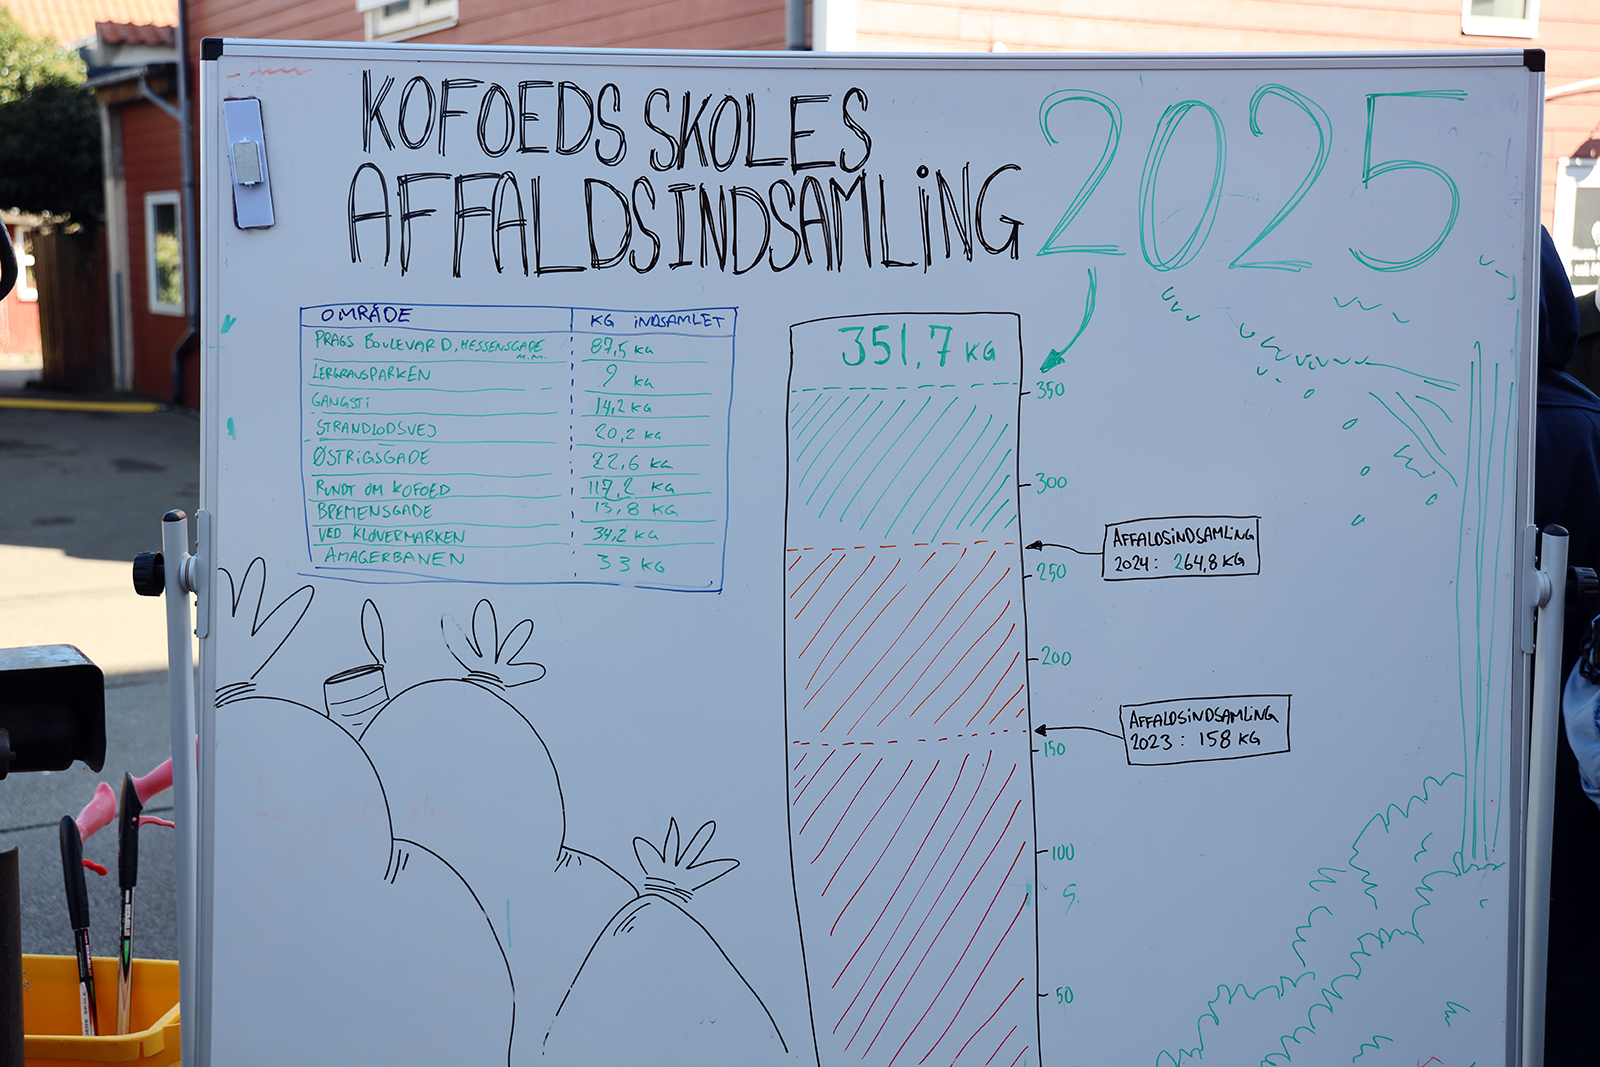 KOFOEDS SKOLES
AFFALDSINDSAMLiNG
2025
OMRÅDE KG iNDSAMLET
PRAGS BOULEVARD, HESSENSGADE M.M. 87,5 KG
LERGRAVSPARKEN 9 KG
GANGSTi 14,2 KG
STRANDLODSVEJ 20,2 KG
ØSTRIGSGADE 22,6 KG
RUNDT OM KOFOED 117,2 KG
BREMENSGADE 13,8 KG
VED KLØVERMARKEN 34,2 KG
AMAGERBANEN 33 KG
351,7 KG
350
300
250
200
150
100
50
AFFALDSiNDSAMLiNG
2024: 264,8 KG
AFFALDSiNDSAMLiNG
2023: 158 KG